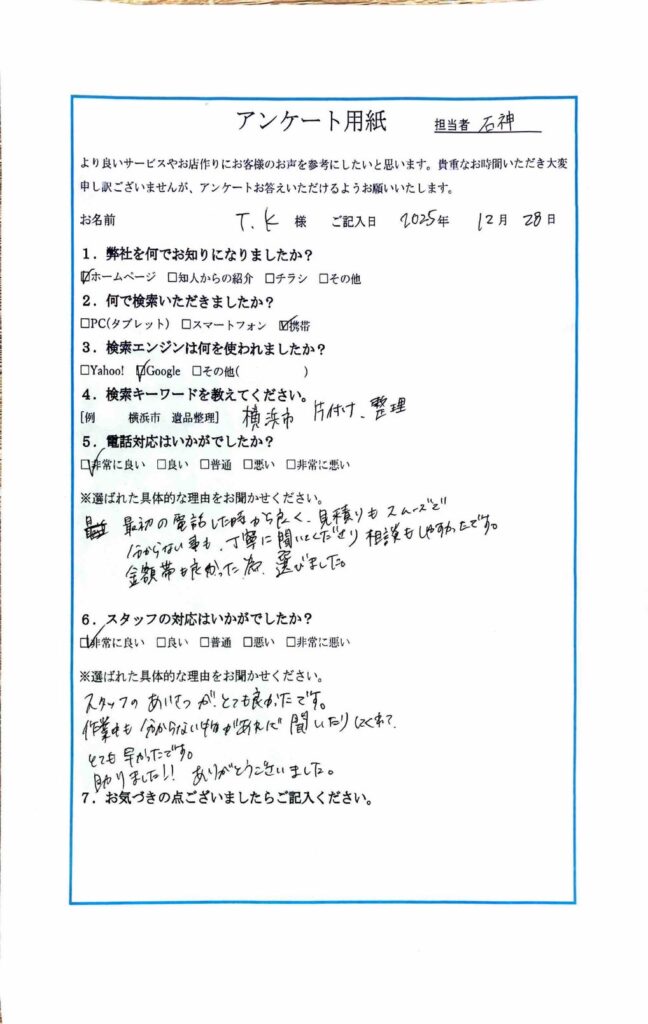 アンケート用紙
担当者 石神
より良いサービスやお店作りにお客様のお声を参考にしたいと思います。貴重なお時間いただき大変
申し訳ございませんが、アンケートお答えいただけるようお願いいたします。
お名前 T.K 様 ご記入日 2025年 12月 28日
1．弊社を何でお知りになりましたか？
☑ホームページ □知人からの紹介 □チラシ □その他
2．何で検索いただきましたか？
□PC(タブレット) □スマートフォン ☑携帯
3．検索エンジンは何を使われましたか？
□Yahoo! ☑Google □その他( )
4．検索キーワードを教えてください。
[例 横浜市 遺品整理] 横浜市 片付け、整理
5．電話対応はいかがでしたか？
☑非常に良い □良い □普通 □悪い □非常に悪い
※選ばれた具体的な理由をお聞かせください。
最初の電話した時から良く、見積りもスムーズで
分からない事も、丁寧に聞いてくださり相談もしやすかったです。
金額帯も良かった為、選びました。
6．スタッフの対応はいかがでしたか？
☑非常に良い □良い □普通 □悪い □非常に悪い
※選ばれた具体的な理由をお聞かせください。
スタッフのあいさつが、とても良かったです。
作業中も分からない物があれば聞いたりしてくれて、
とても早かったです。
助りました!! ありがとうございました。
7．お気づきの点ございましたらご記入ください。